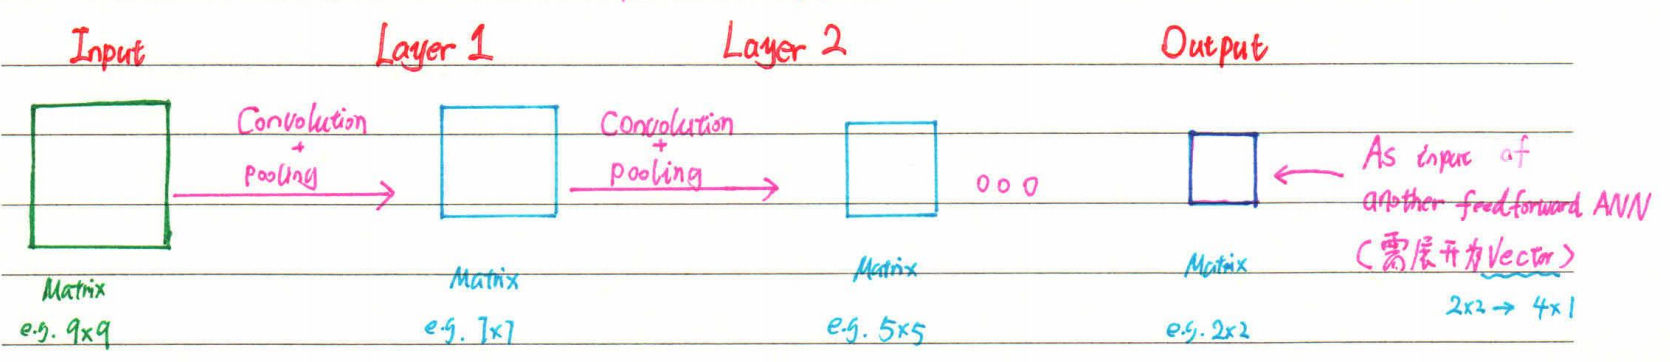 Input Layer 1 Layer 2 Output
Convolution
+
pooling
Convolution
+
pooling
ooo
As input of
another feedforward ANN
(需展开为Vector)
2x2 → 4x1
Matrix
e.g. 9x9
Matrix
e.g. 7x7
Matrix
e.g. 5x5
Matrix
e.g. 2x2